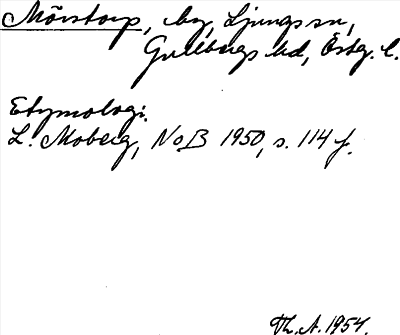 Mörstorp, by, Ljungs sn,
Gullbergs hd, Östg. l.
Etymologi.
L. Moberg, NoB 1950, s. 114 f.
Th. A. 1954.